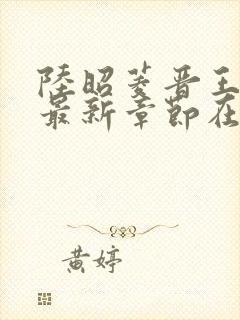 陸昭菱晋王
最新章節在
黄婷